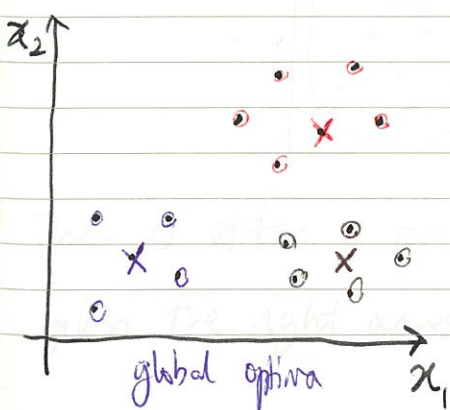 x₂
global optima
x₁